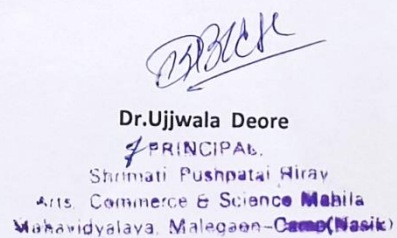 Dr.Ujjwala Deore
PRINCIPAL.
Shrimati Pushpatai Hiray
Arts, Commerce & Science Mahila
Mahavidyalaya, Malegaon-Camp(Nasik)